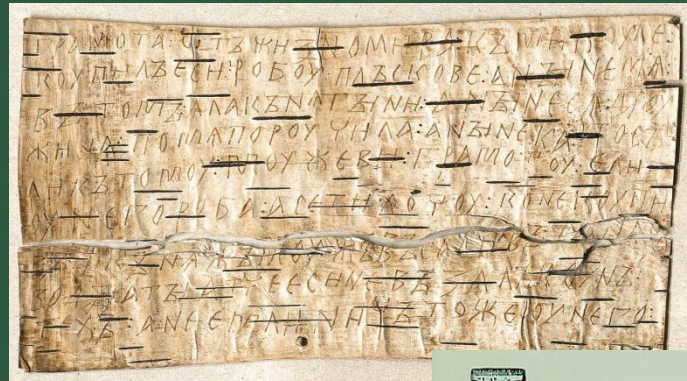 ГРАМОТА : ѠТЪ ЖИЗНОМИРА : КЪ МИКОУЛЕ :
КОУПИЛЪ ЕСИ : РОБОУ : ПЛЪСКОВЕ : А НЫНЕ МѦ :
ВЪ ТОМЪ : ѦЛА КЪНѦГЫНИ : А НЫНЕ СѦ ДРОУ
ЖИНА : ПО МѦ ПОРОУЧИЛА : А НЫНЕ КА : ПОСЪ
ЛИ КЪ ТОМОУ : МОУЖЕВИ : ГРАМОТОУ : ЕЛИ
ОУ НЕГО РОБА : А СЕ ТИ ХОЧОУ : КОНЕ КОУПИ
КЪНѦ МОУЖЪ ВЪСА
АТЪ ЕСИ НЕ ВЪЗАЛЪ КОУНЪ :
ХЪ : А НЕ ЕМЛИ : НИЧЪТО ЖЕ ОУ НЕГО :